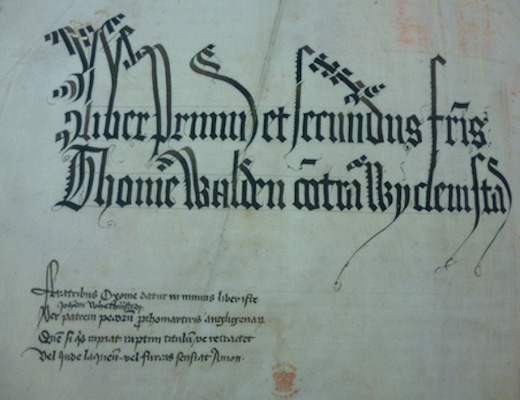 Liber primus et secundus fr̄is
Thome Walden cōtra Wycleuistas
Fratribus Oxonie datur in munus liber iste
Johem Whethmstede
Per patrem pecorū ꝓthomartiris angligenarū
Quē si q̄s rapiat raptim titulū ve retractet
Vel Jude laqueū vel furcas senciat Amen